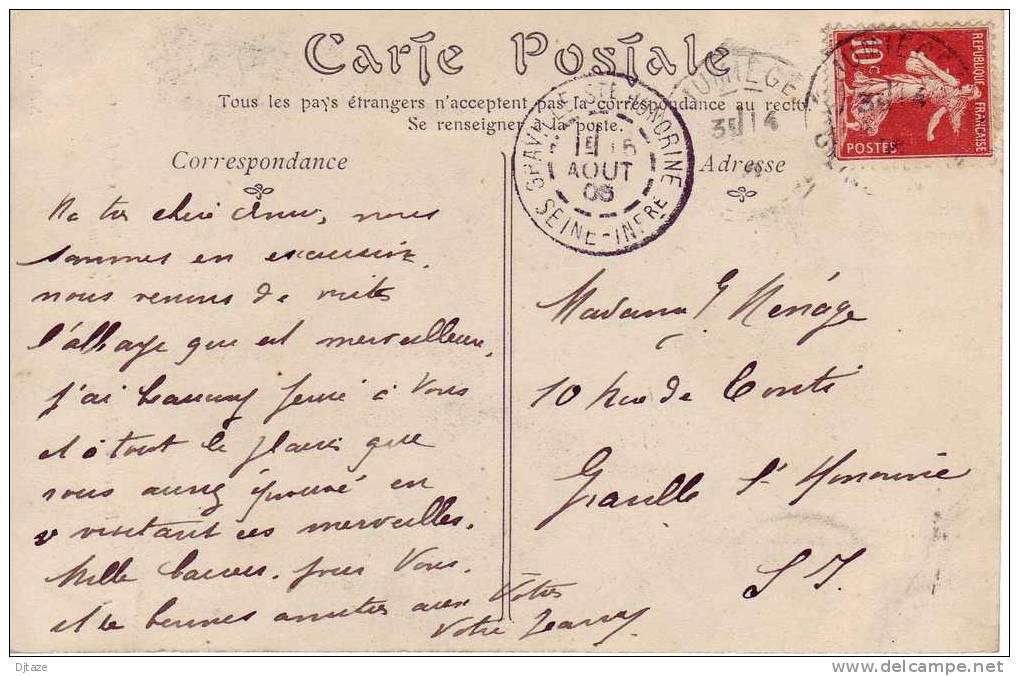 Carte Postale
Tous les pays étrangers n'acceptent pas la correspondance au recto.
Se renseigner à la poste.
Correspondance
Adresse
REPUBLIQUE FRANÇAISE
10c
POSTES
GRAVILLE-STE HONORINE
AOUT
SEINE-INFRE
Ma très chère amie, nous
sommes en excursion,
nous venons de visiter
l'abbaye qui est merveilleuse,
j'ai beaucoup pensé à Vous
et à tout le plaisir que
vous auriez éprouvé en
visitant ces merveilles.
Mille baisers pour Vous.
et de bonnes amitiés aux Vôtres
Votre
Madame Menáge
10 Rue de Conti
Graville Ste Honorine
S I
Djtaze
www.delcampe.net